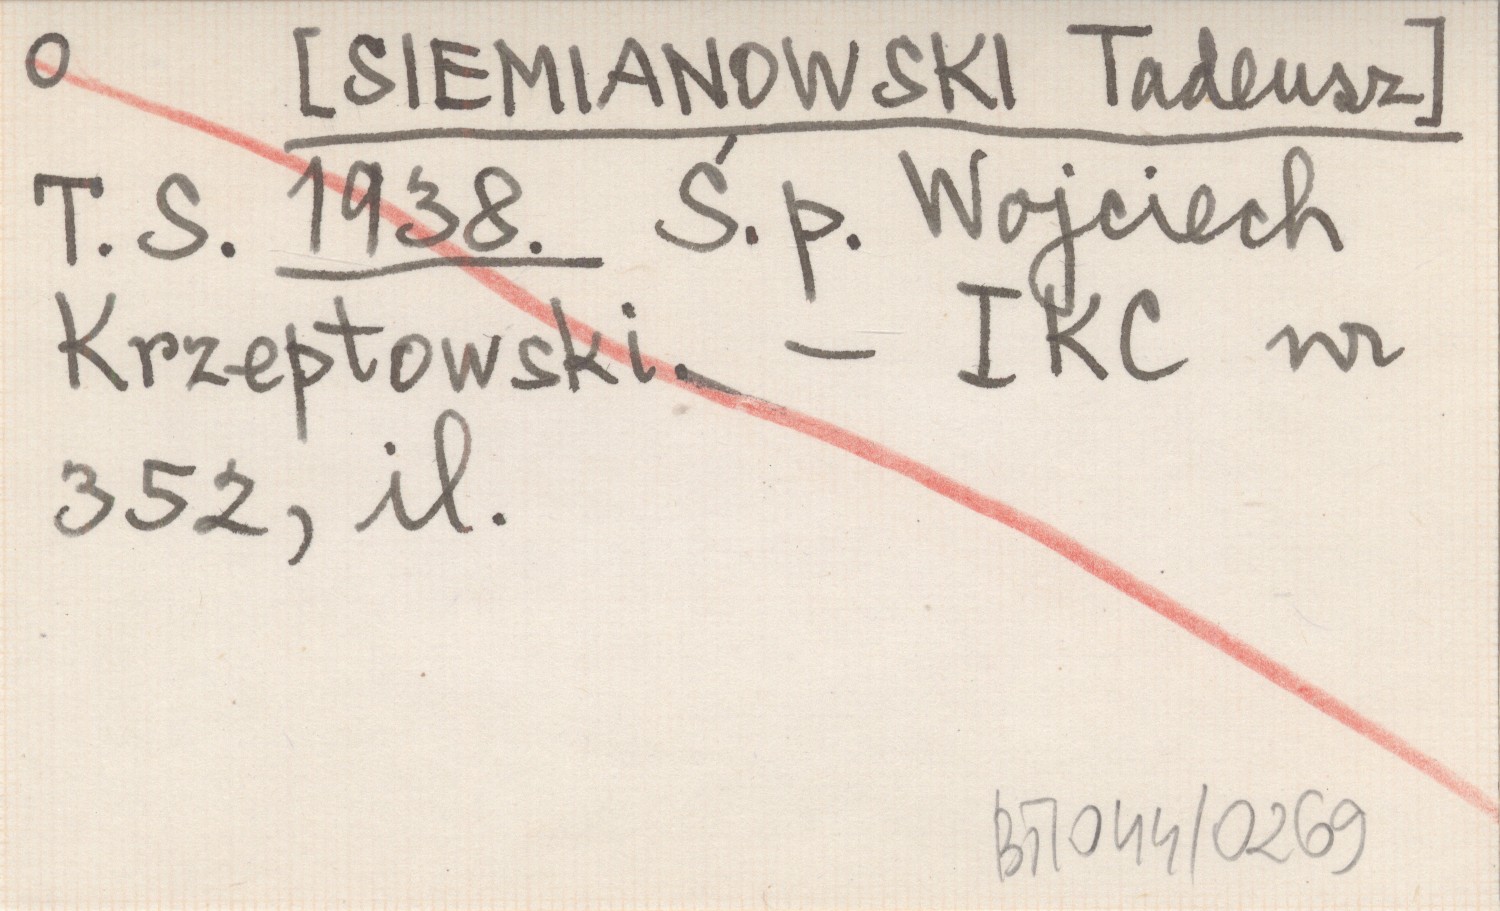 O [SIEMIANOWSKI Tadeusz]
T.S. 1938. Ś.p. Wojciech
Krzeptowski. – IKC nr
352, il.
BT/044/0269